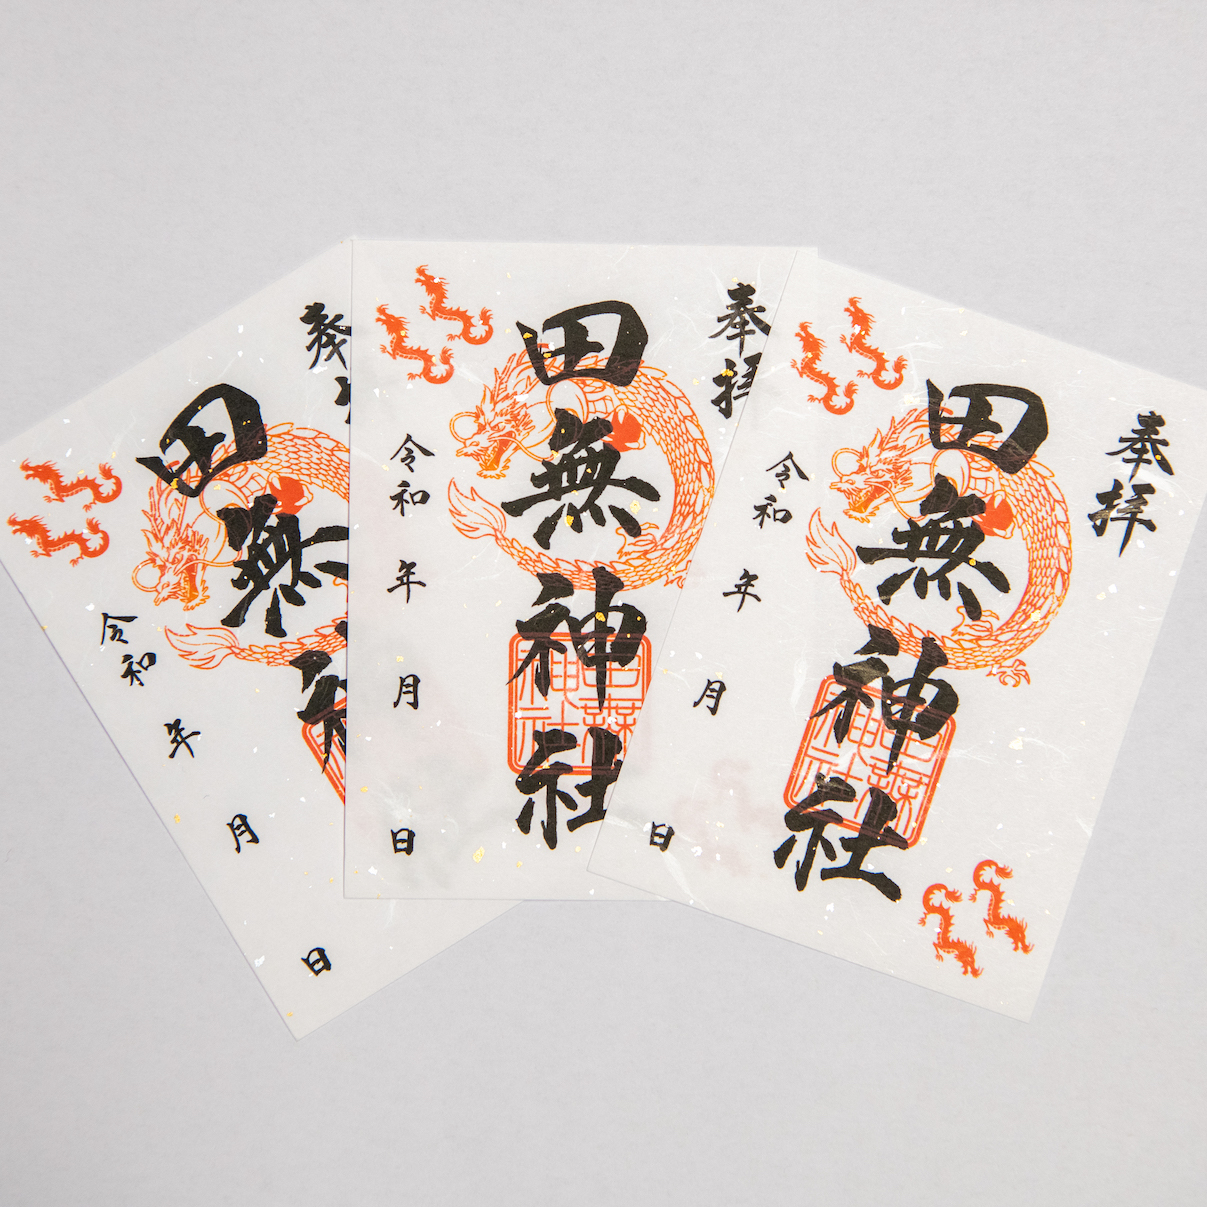 奉拝
田無神社
令和 年 月 日
奉拝
田無神社
令和 年 月 日
奉
田無
令和 年 月 日